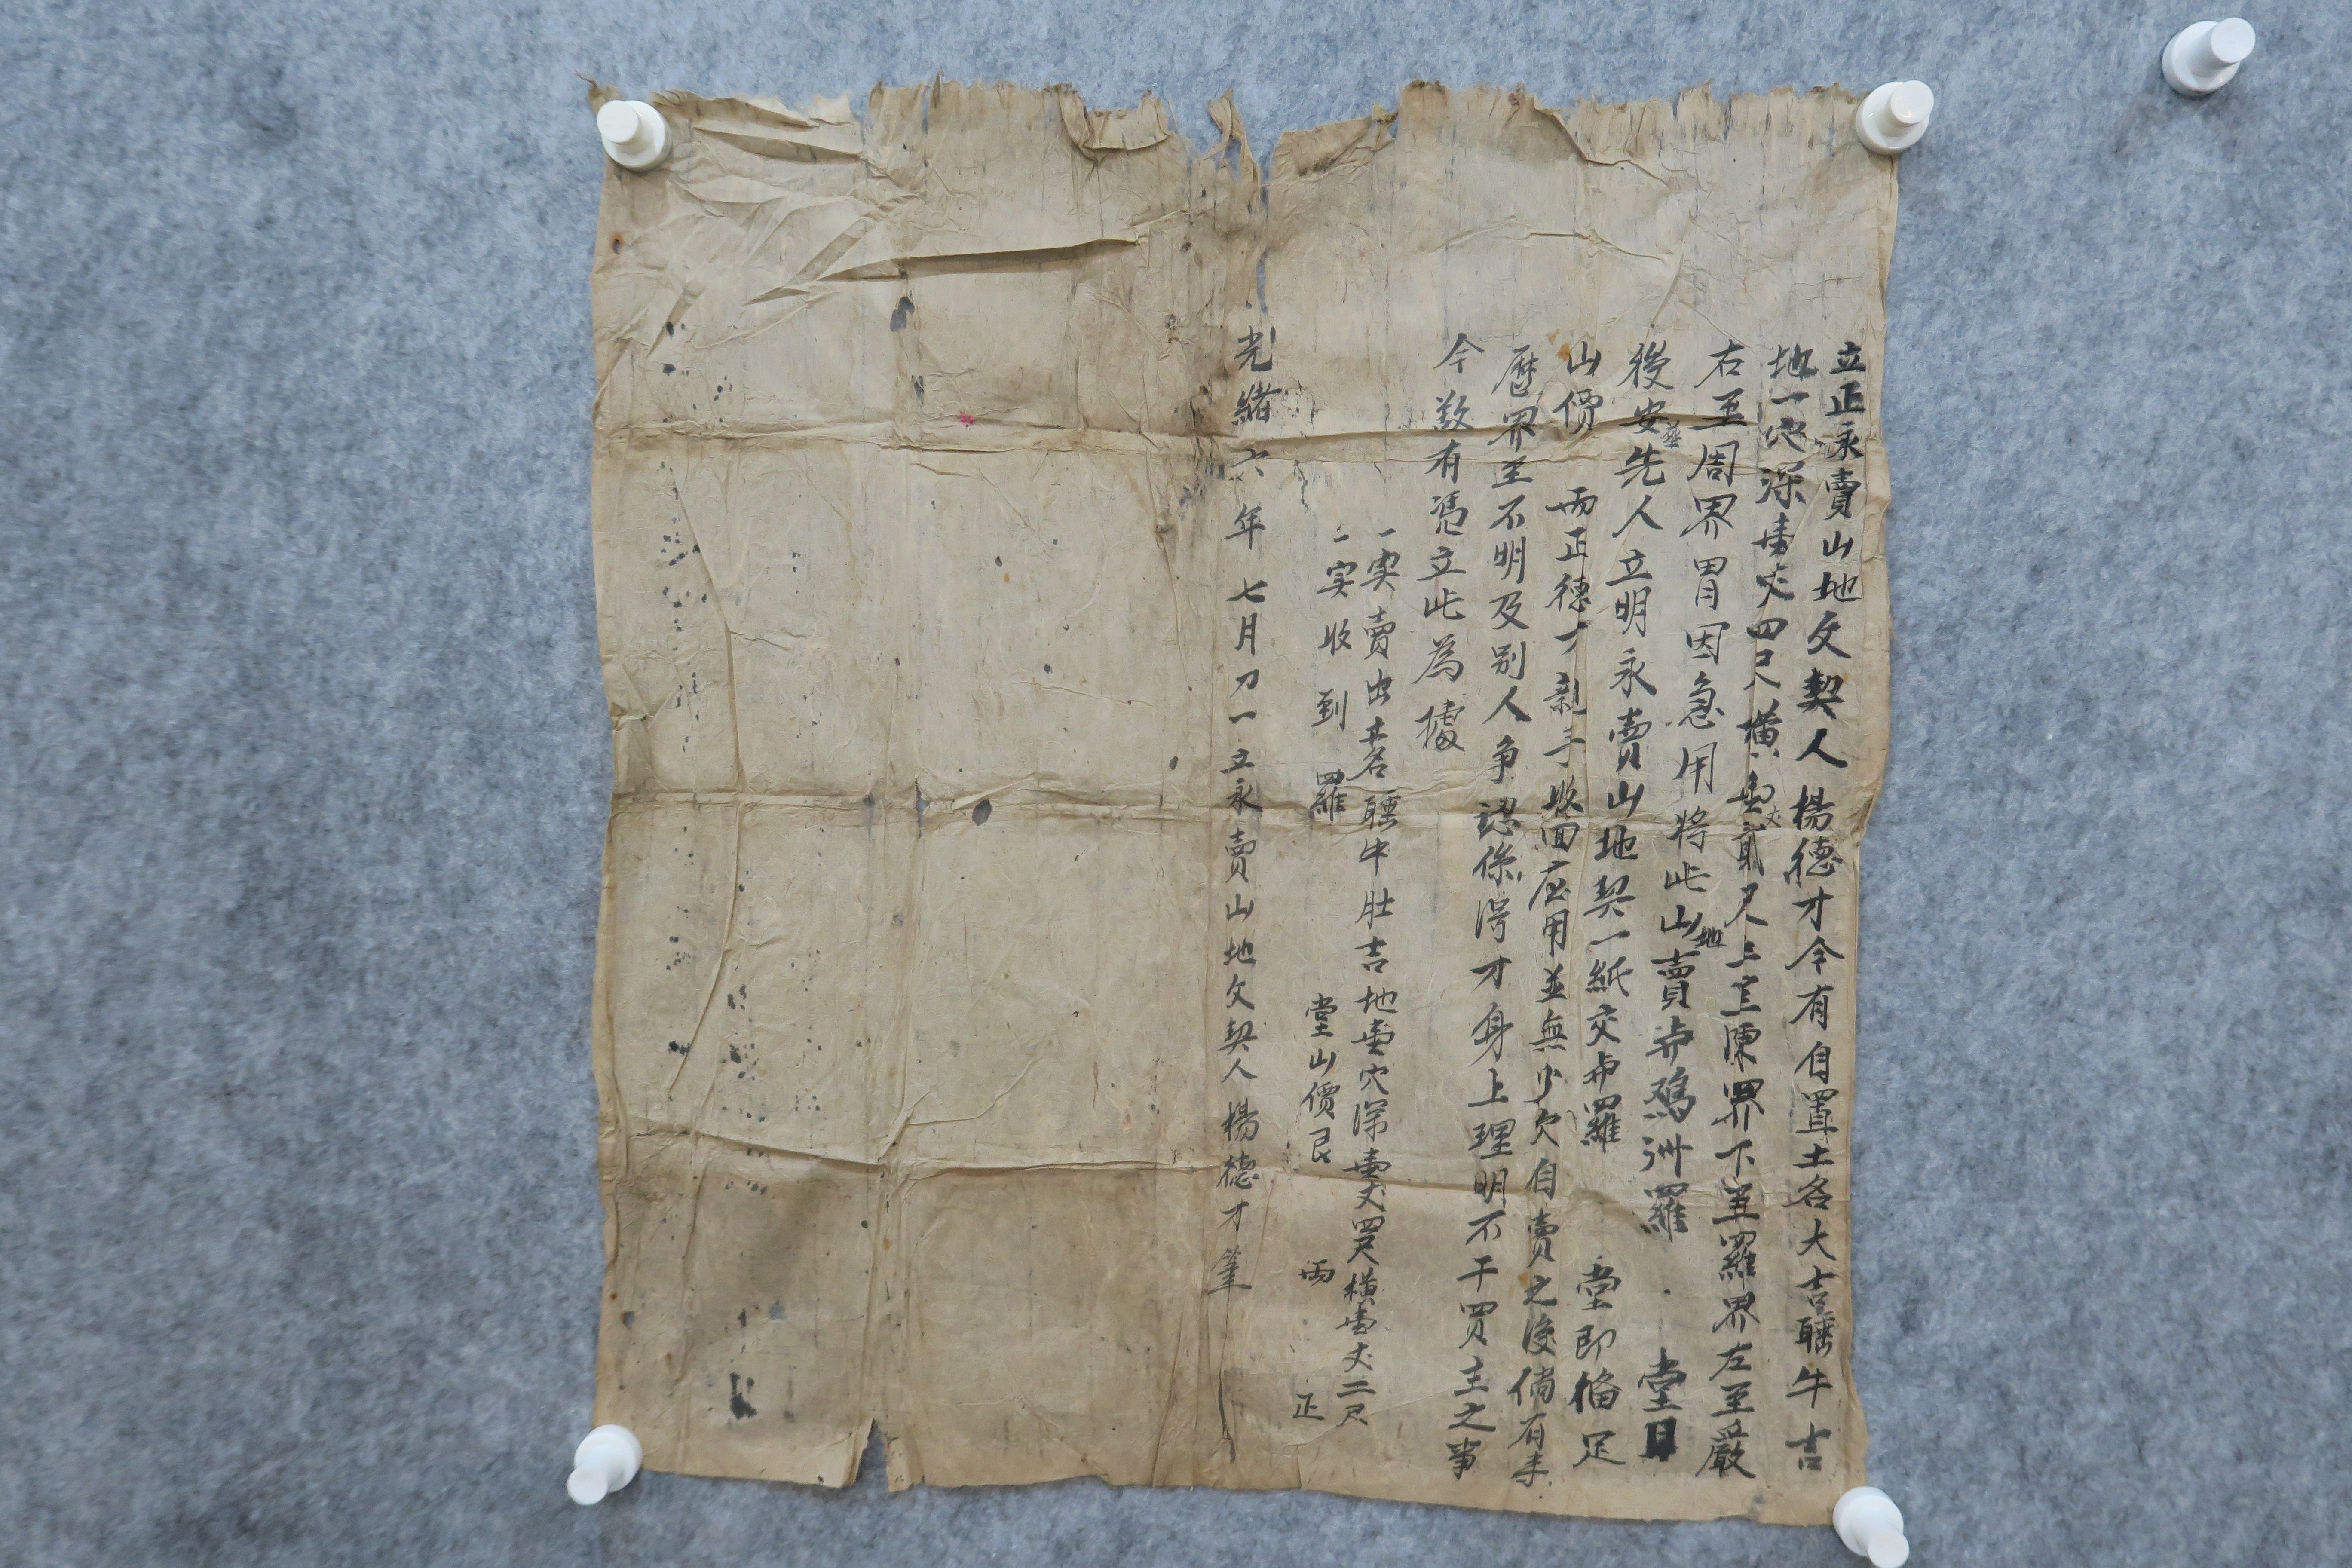 立正永賣山地文契人楊德才今有自置土名大吉𦕈牛吉
地一穴深壹丈四尺橫壹丈貳尺上至陳界下至羅界左至嚴
右至周界冐因急用將此山地賣與鴉洲羅 堂日
後安葬先人立明永賣山地契一紙交與羅 堂即偹足
山價 兩正德才親手收回应用並無少欠自賣之後倘有来
歷界至不明及别人争認係淂才身上理明不干買主之事
今欲有憑立此為據
一実賣出土名 牛肚吉地壹穴深壹丈四尺橫壹丈二尺
一実收到 羅 堂山價艮 兩 正
光緒六年七月初一立永賣山地文契人楊德才筆